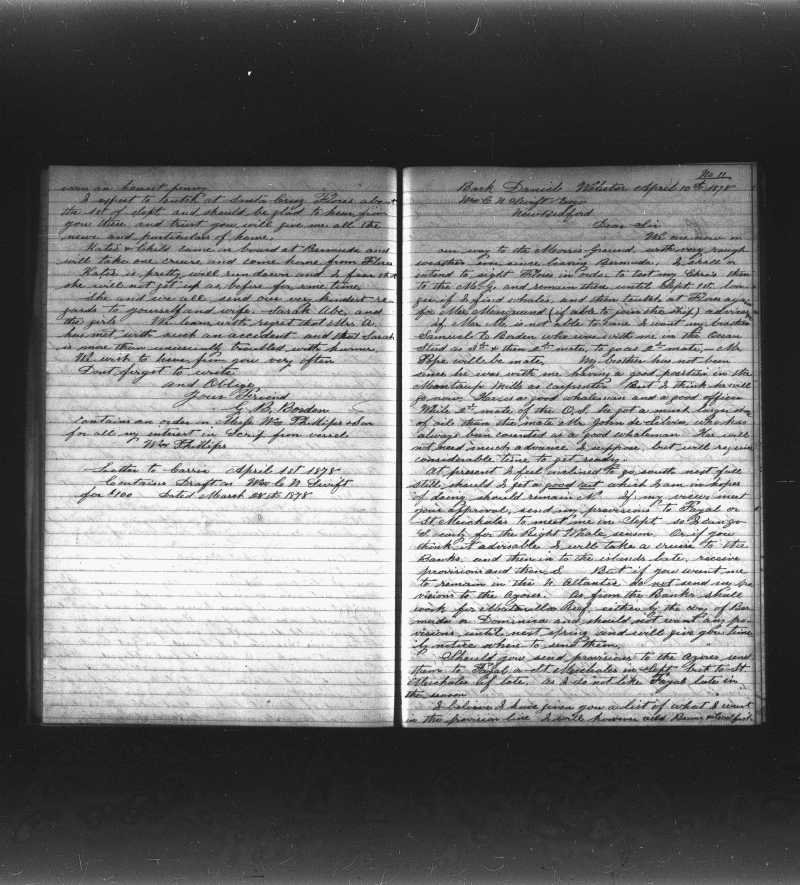 earn an honest penny
I expect to touch at Santa Cruz Flores about
the 1st of Sept. and should be glad to hear from
you there and trust you will give me all the
news and particulars of home.
Katie & Child came on board at Bermuda and
will take one cruise and come home from Flores
Katie is pretty well run down and I fear that
she will not get up as before for some time
She and we all send our very kindest re-
gards to yourself and wife, Sarah Abe, and
the girls. We learn with regret that Mr A.
has met with such an accident and that Sarah
is more than sincerely troubled with
We wish to have from you very often
Dont forget to write
and Oblige
Your Friend
G. B. Borden
contains an order on Messrs Wm Phillips & Son
for all my interest in Scrif from vessels
Wm Phillips
Letter to Carrie April 1st 1878
Contains Draft on Wm C. N. Swift
for $100 Dated March 28th 1878
No 11
Bark Daniel Webster April 10th 1878
Wm C. N. Swift Esqr
New Bedford
Dear Sir
We are now on
our way to the Morris Ground with very rough
weather ever since leaving Bermuda. I shall or
intend to sight Flores in order to test my Chro's then
to the M. G. and remain there until Sept 1st. lon
ger if I find whales and then touch at Flores again
for Mr Marquand (if able to join the ship) advise
if Mr M. is not able to come I want my brother
Samuel C. Borden who was with me in the Ocean
Steed as 3d & then 2d mate, to go as 2d mate, Mr
Pope will be mate, My brother has not been
since he was with me having a good position in the
Montaup Mills as carpenter But I think he will
go now. He is a good whaleman and a good officer
While 2d mate of the O. S. he got a much larger share
of oil than the mate Mr John de Silvia who has
always been counted as a good whaleman He will
not need much advance I suppose, but will require
considerable time to get ready.
At present I feel inclined to go south next fall
still should I get a good cut which I am in hopes
of doing should remain N. If my views meet
your approval, send my provisions to Fayal or
St Meicholes to meet me in Sept. so I can go
S. early for the Right Whale season. Or if you
think it advisable I will take a cruise to the
Banks, and then in to the islands late, receive
provisions and then S. But if you want me
to remain in the N. Atlantic do not send my pro
visions to the Azores. As from the Banks shall
work for Reef, either by the way of Ber
muda or Dominica and should not want any pro
visions until next spring and will give you time
ly notice where to send them.
Should you send provisions to the Azores send
them to Fayal or St Meicholes in Sept. but to St
Meicholes if late, as I do not like Fayal late in
the season
I believe I have given you a list of what I want
in the provision line I will however add Beans &